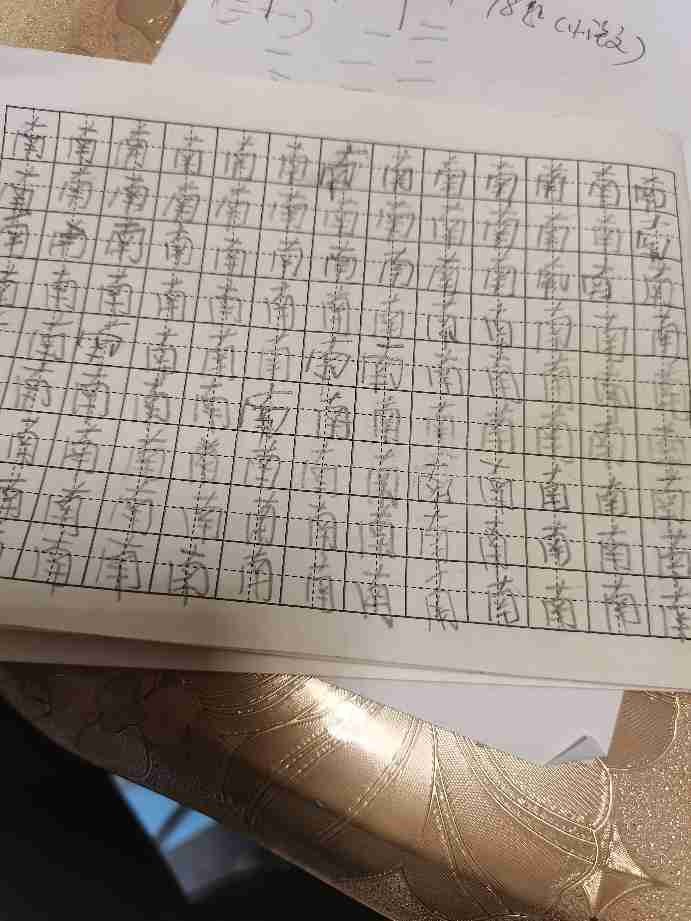 (二十一) 18题(小说文)
南南南南南南南南南南南南南
南南南南南南南南南南南南南
南南南南南南南南南南南南南
南南南南南南南南南南南南南
南南南南南南南南南南南南南
南南南南南南南南南南南南南
南南南南南南南南南南南南
南南南南南南南南南南南南南
南南南南南南南南南南南南